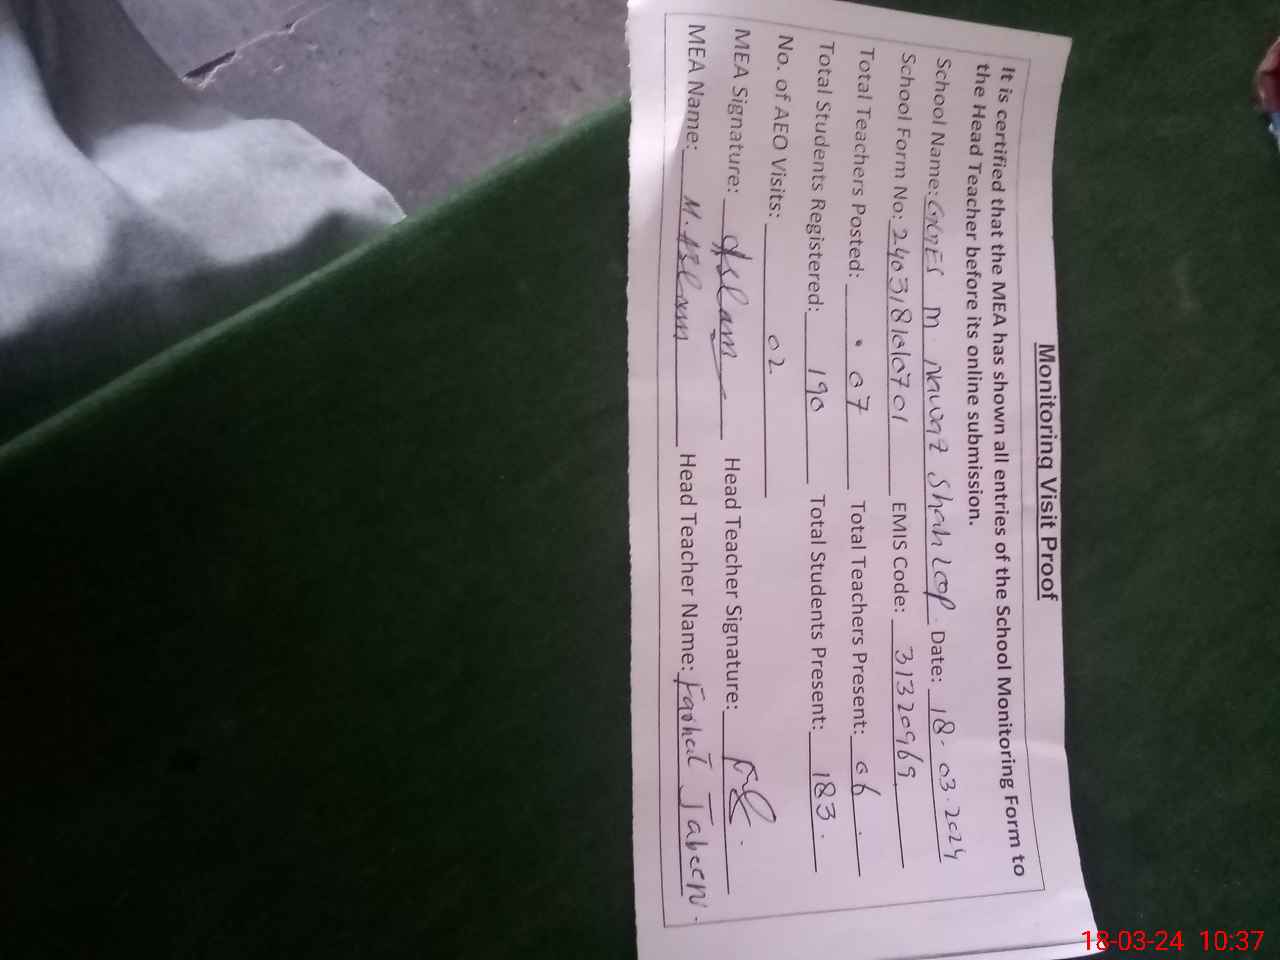 Monitoring Visit Proof
It is certified that the MEA has shown all entries of the School Monitoring Form to
the Head Teacher before its online submission.
School Name: GGES M Nawaz Shah Loop. Date: 18-03-2024
School Form No: 2403181010701 EMIS Code: 31320969
Total Teachers Posted: 07 Total Teachers Present: 06
Total Students Registered: 190 Total Students Present: 183.
No. of AEO Visits: 02.
MEA Signature: Aslam Head Teacher Signature:
MEA Name: M. Aslam Head Teacher Name: Farhat Jabeen.
18-03-24 10:37